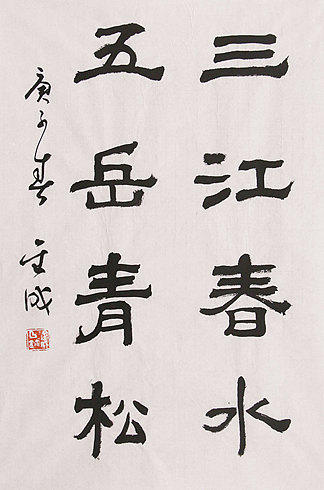 三江春水
五岳青松
庚子春